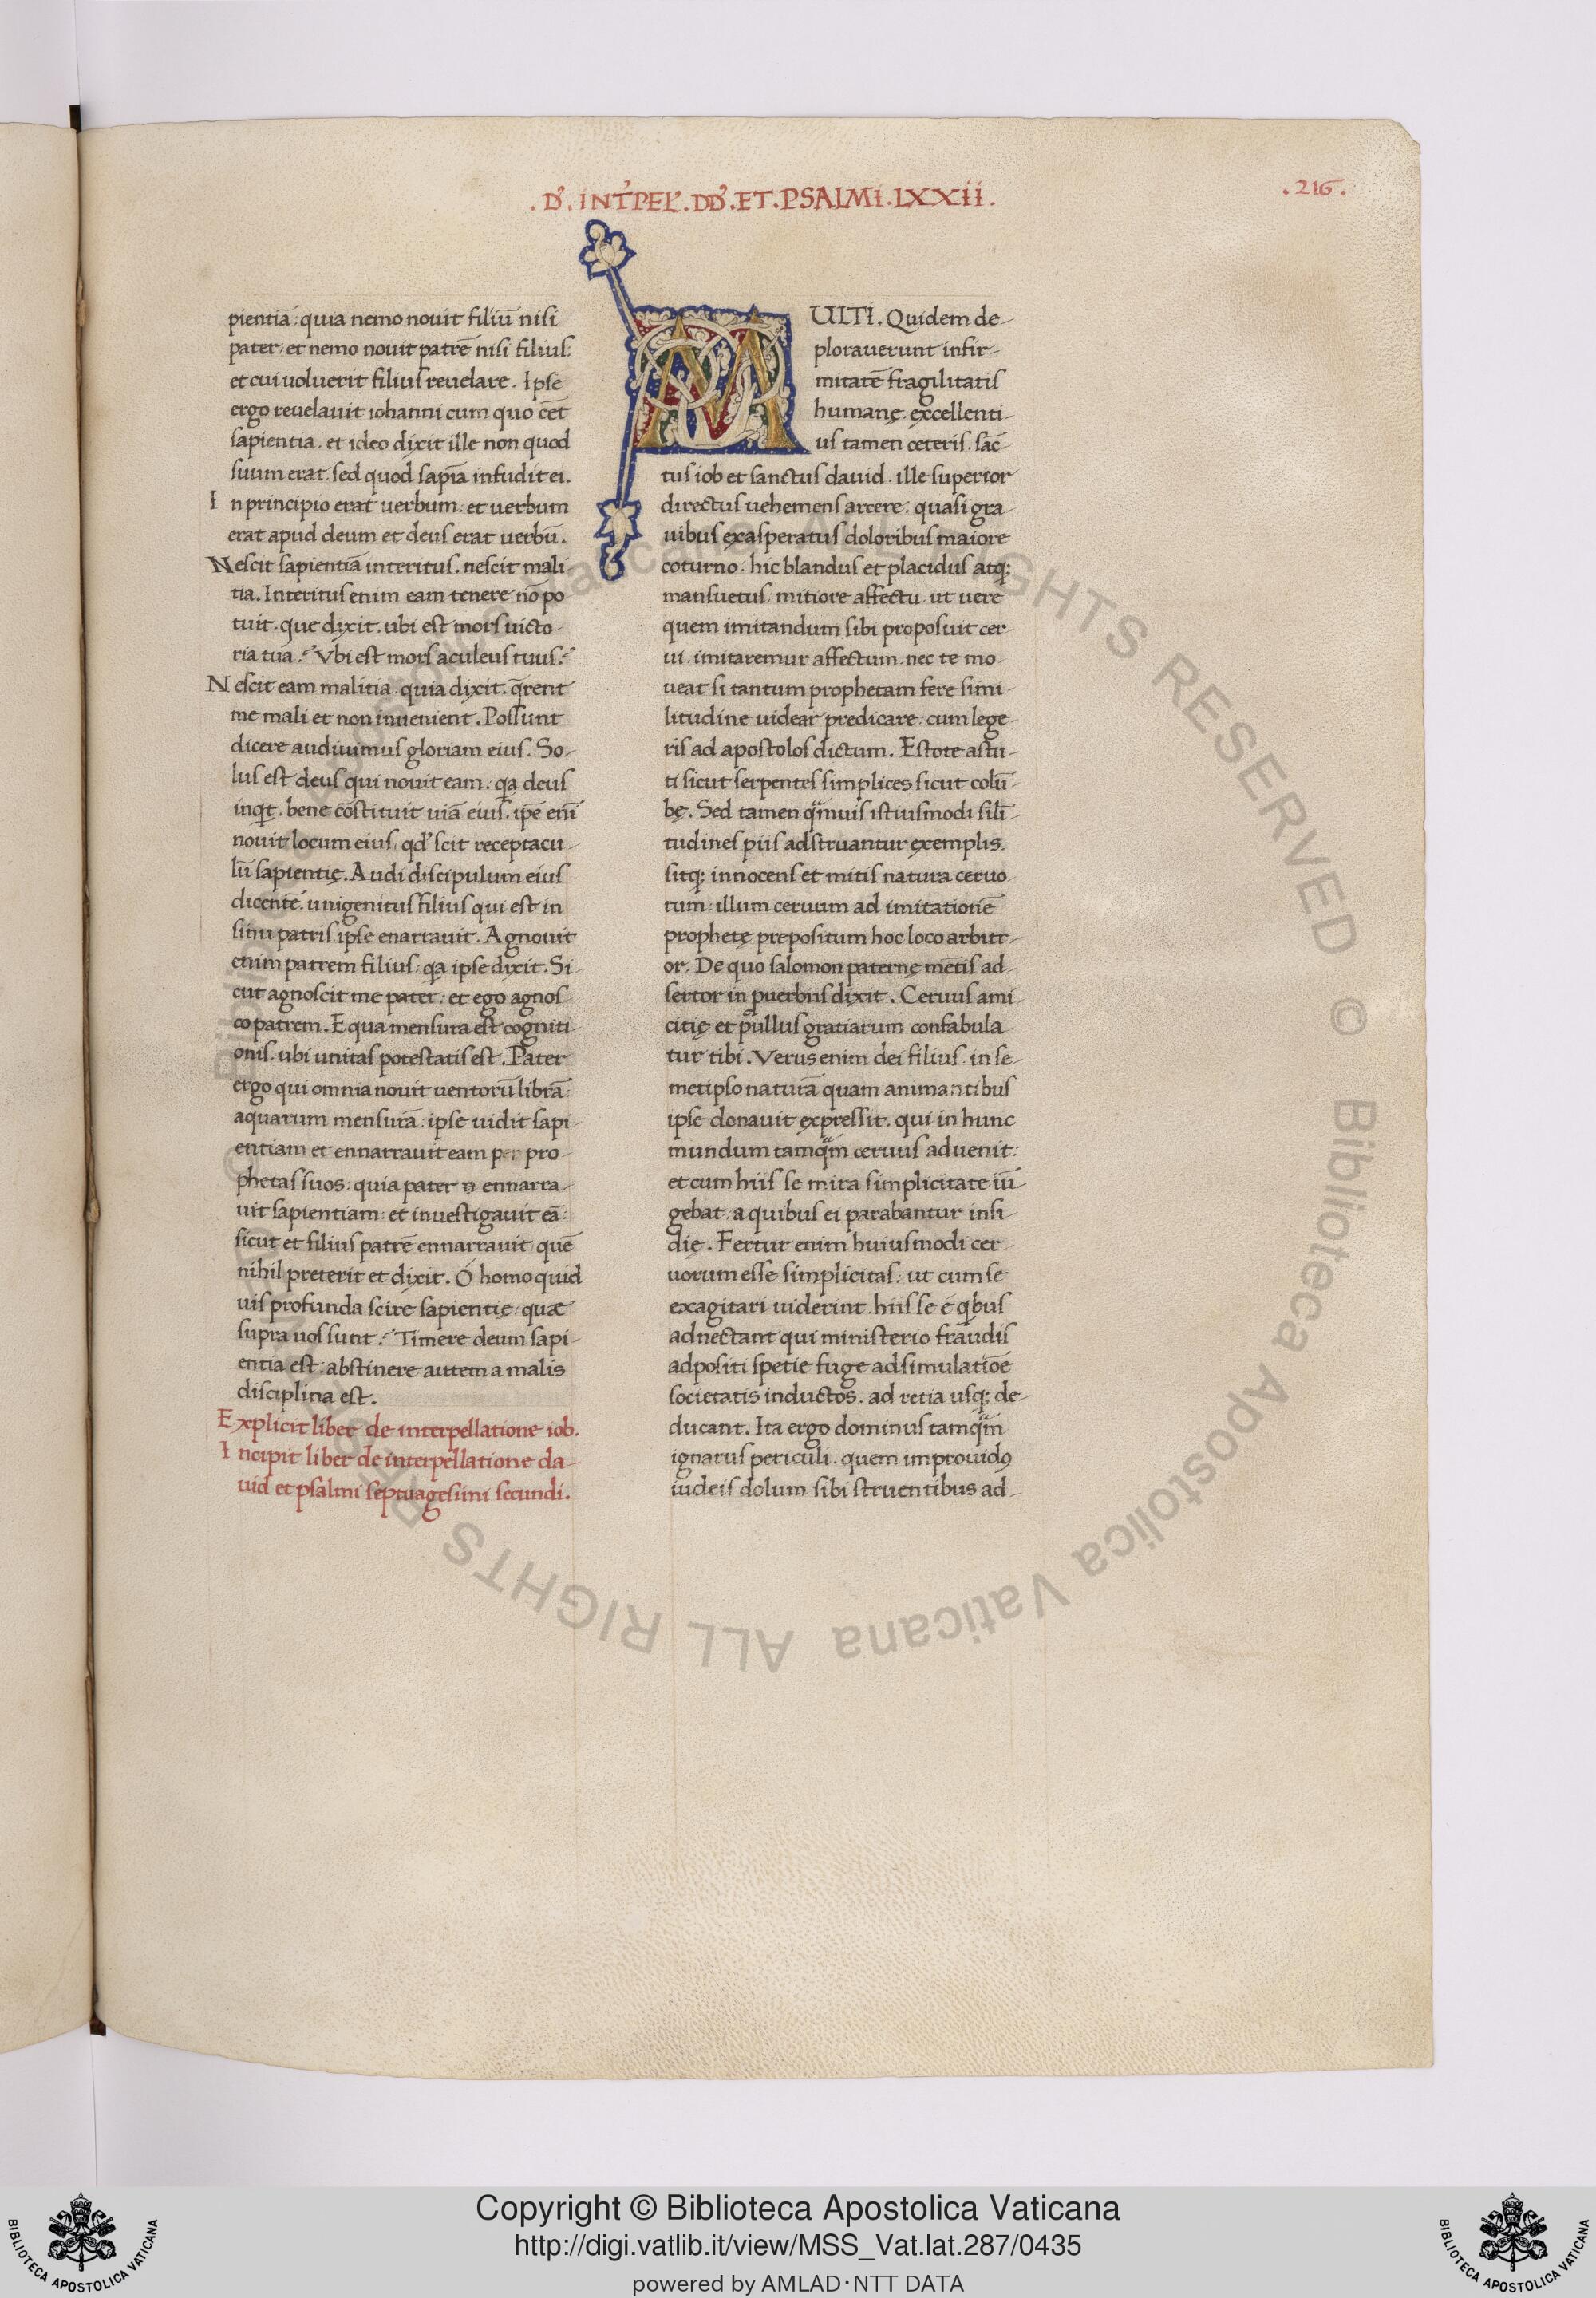 .Dʼ. INTʼPELʼ. DDʼ. ET. PSALMI. LXXII.
.216.
pientiā: quia nemo nouit filiū nisi
pater. et nemo nouit patrē nisi filius:
et cui uoluerit filius reuelare. Ipse
ergo reuelauit iohanni cum quo eēt
sapientia. et ideo dixit ille non quod
suum erat. sed quod sapīa infudit ei.
In principio erat uerbum: et uerbum
erat apud deum et deus erat uerbū.
Nescit sapientiā interitus. nescit mali
tia. Interitus enim eam tenere nō po
tuit. que dixit. ubi est mors uicto-
ria tua. Vbi est mors aculeus tuus.
Nescit eam malitia. quia dixit. q̄rent
me mali et non inuenient. Possunt
dicere audiuimus gloriam eius. So-
lus est deus qui nouit eam. qa deus
inqt. bene cōstituit uiā eius. ipē enī
nouit locum eius. qdʼ scit receptacu-
lū sapientię. Audi discipulum eius
dicentē. unigenitus filius qui est in
sinu patris ipse enarrauit. Agnouit
enim patrem filius: qa ipse dixit. Si-
cut agnoscit me pater: et ego agnos-
co patrem. Equa mensura est cogniti-
onis. ubi unitas potestatis est. Pater
ergo qui omnia nouit uentorū librā:
aquarum mensurā: ipse uidit sapi-
entiam et ennarrauit eam per pro-
phetas suos: quia pater n ennarra-
uit sapientiam: et inuestigauit eā:
sicut et filius patrē ennarrauit quē
nihil preterit et dixit. O homo quid
uis profunda scire sapientię: quæ
supra uos sunt. Timere deum sapi-
entia est: abstinere autem a malis
disciplina est.
Explicit liber de interpellatione iob.
Incipit liber de interpellatione da-
uid et psalmi septuagesimi secundi.
MULTI. Quidem de-
plorauerunt infir-
mitatē fragilitatis
humanę. excellenti-
us tamen ceteris. sāc-
tus iob et sanctus dauid. ille superior
directus uehemens arcere: quasi gra-
uibus exasperatus doloribus maiore
coturno. hic blandus et placidus atq;
mansuetus. mitiore affectu. ut uere
quem imitandum sibi proposuit cer-
ui. imitaremur affectum. nec te mo-
ueat si tantum prophetam fere simi-
litudine uidear predicare: cum lege-
ris ad apostolos dictum. Estote astu-
ti sicut serpentes simplices sicut colū-
bę. Sed tamen qmuis istiusmodi sili-
tudines piis adstruantur exemplis.
sitq; innocens et mitis natura ceruo
rum: illum ceruum ad imitationē
prophetę prepositum hoc loco arbitr-
or. De quo salomon paternę mētis ad-
sertor in puerbiis dixit. Ceruus ami
citię et pullus gratiarum confabula
tur tibi. Verus enim dei filius. in se-
metipso naturā quam animantibus
ipse donauit expressit. qui in hunc
mundum tamqm ceruus aduenit:
et cum hiis se mira simplicitate iū-
gebat. a quibus ei parabantur insi-
dię. Fertur enim huiusmodi cer-
uorum esse simplicitas. ut cum se
exagitari uiderint. hiis se e qbus
adnectant qui ministerio fraudis
adpositi spetie fuge adsimulatiōe
societatis inductos. ad retia usq; de-
ducant. Ita ergo dominus tamqm
ignarus periculi. quem improuidꝯ
iudeis dolum sibi struentibus ad-
© Biblioteca Apostolica Vaticana ALL RIGHTS RESERVED
Copyright © Biblioteca Apostolica Vaticana
http://digi.vatlib.it/view/MSS_Vat.lat.287/0435
powered by AMLAD·NTT DATA
BIBLIOTECA APOSTOLICA VATICANA
BIBLIOTECA APOSTOLICA VATICANA